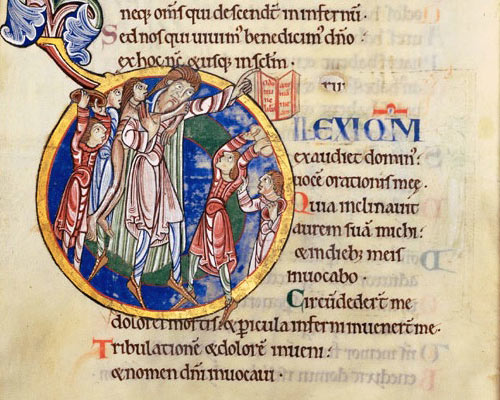 neq; om̅s qui descendt̅ in infernu̅
Sed nos qui uiuim᷒ benedicim᷒ dn̅o
ex hoc nc̅ & usq; in sclm̅.
DILEXI QM̅
exaudiet domin᷒:
uoce̅ orationis mee.
Quia inclinauit
aurem suā michi:
& in dieb᷒ meis
inuocabo.
Circu̅dedert̅ me
dolores mortis: & pericula inferni inuenert̅ me.
Tribulatione̅ & dolore̅ inueni:
& nomen dn̅i inuocaui.